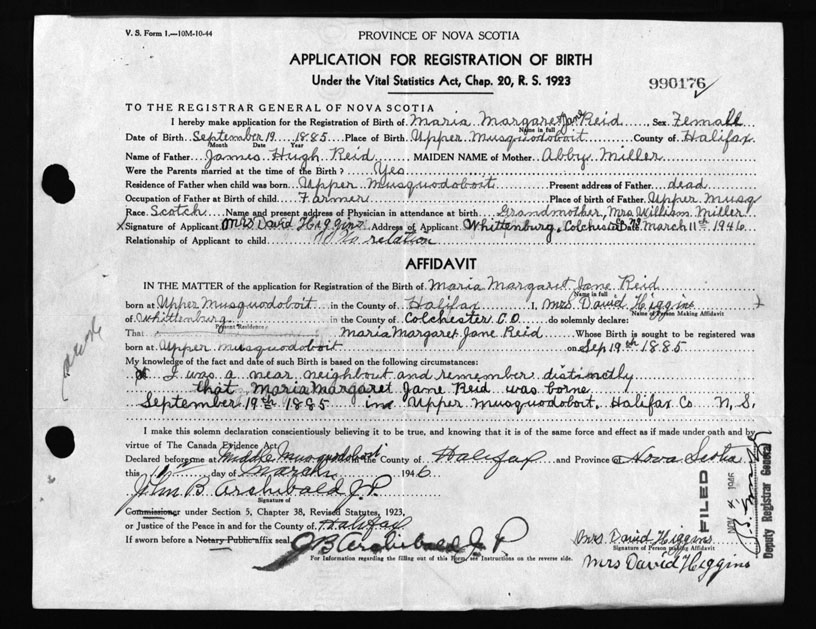 V. S. Form 1.—10M-10-44
PROVINCE OF NOVA SCOTIA
APPLICATION FOR REGISTRATION OF BIRTH
Under the Vital Statistics Act, Chap. 20, R. S. 1923
990176
TO THE REGISTRAR GENERAL OF NOVA SCOTIA
I hereby make application for the Registration of Birth of Maria Margaret Jane Reid, Sex Female
Name in full
Date of Birth September 19 1885 Place of Birth Upper Musquodoboit County of Halifax
Month Date Year
Name of Father James Hugh Reid MAIDEN NAME of Mother Abby Miller
Were the Parents married at the time of the Birth? Yes
Residence of Father when child was born Upper Musquodoboit Present address of Father dead
Occupation of Father at Birth of child Farmer Place of birth of Father Upper Musq
Race Scotch Name and present address of Physician in attendance at birth Grandmother, Mrs William Miller
x Signature of Applicant Mrs David Higgins Address of Applicant Whittenburg, Colchester Date March 11th 1946
Relationship of Applicant to child No relation
AFFIDAVIT
IN THE MATTER of the application for Registration of the Birth of Maria Margaret Jane Reid
Name in full
born at Upper Musquodoboit in the County of Halifax I, Mrs David Higgins
Name of Person Making Affidavit
of Whittenburg in the County of Colchester CO. do solemnly declare:
Present Residence
That Maria Margaret Jane Reid Whose Birth is sought to be registered was
born at Upper Musquodoboit on Sep 19th 1885
My knowledge of the fact and date of such Birth is based on the following circumstances:
I was a near neighbour and remember distinctly
that Maria Margaret Jane Reid was borne
September 19th 1885 in Upper Musquodoboit, Halifax Co N.S.
I make this solemn declaration conscientiously believing it to be true, and knowing that it is of the same force and effect as if made under oath and by
virtue of The Canada Evidence Act.
Declared before me at Middle Musquodoboit the County of Halifax and Province of Nova Scotia
this day of March 1946
John B Archibald J.P.
Signature of
Commissioner under Section 5, Chapter 38, Revised Statutes, 1923,
or Justice of the Peace in and for the County of Halifax
If sworn before a Notary Public affix seal.
J B Archibald J P
For Information regarding the filling out of this Form, see Instructions on the reverse side.
Mrs. David Higgins
Signature of Person making Affidavit
Mrs David Higgins
FILED
NOV 4 1946
Deputy Registrar General